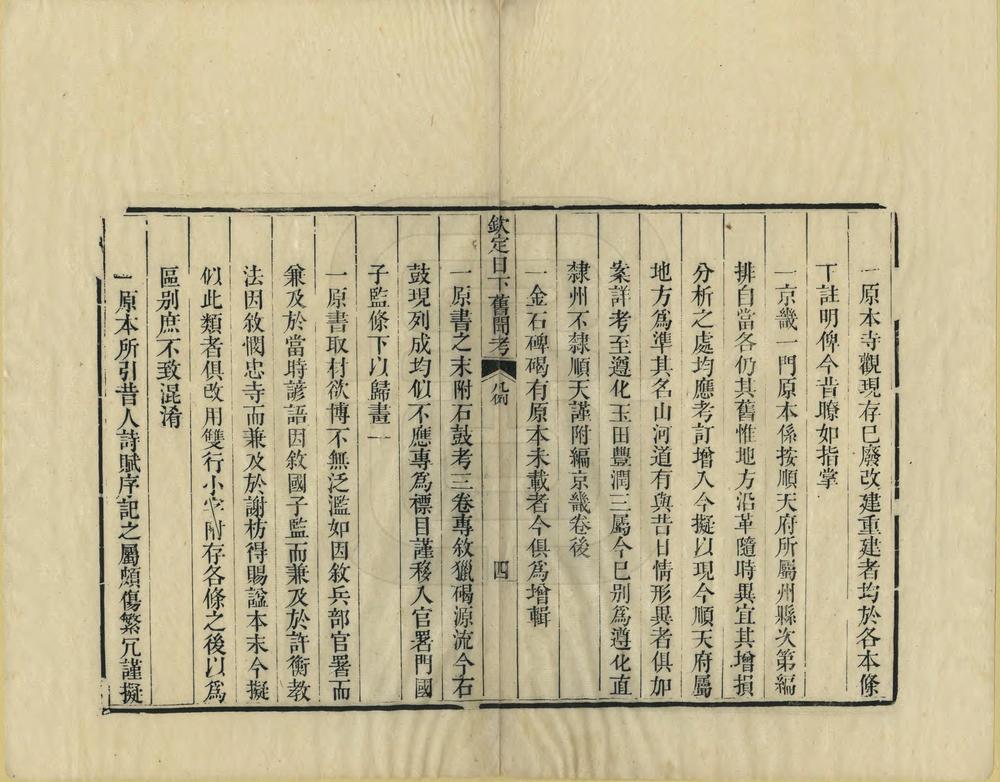 一原本寺觀現存已廢改建重建者均於各本條
下註明俾今昔瞭如指掌
一京畿一門原本係按順天府所屬州縣次第編
排自當各仍其舊惟地方沿革隨時異宜其增損
分析之處均應考訂增入今擬以現今順天府屬
地方爲準其名山河道有與昔日情形異者俱加
案詳考至遵化玉田豐潤三屬今已别爲遵化直
隸州不隸順天謹附編京畿卷後
一金石碑碣有原本未載者今俱爲增輯
欽定日下舊聞考 凡例 四
一原書之末附石鼓考三卷專敘獵碣源流今石
鼓現列成均似不應專爲標目謹移入官署門國
子監條下以歸畫一
一原書取材欲博不無泛濫如因敘兵部官署而
兼及於當時諺語因敘國子監而兼及於許衡教
法因敘憫忠寺而兼及於謝枋得賜諡本末今擬
似此類者俱改用雙行小字附存各條之後以爲
區别庶不致混淆
一原本所引昔人詩賦序記之屬頗傷繁冗謹擬